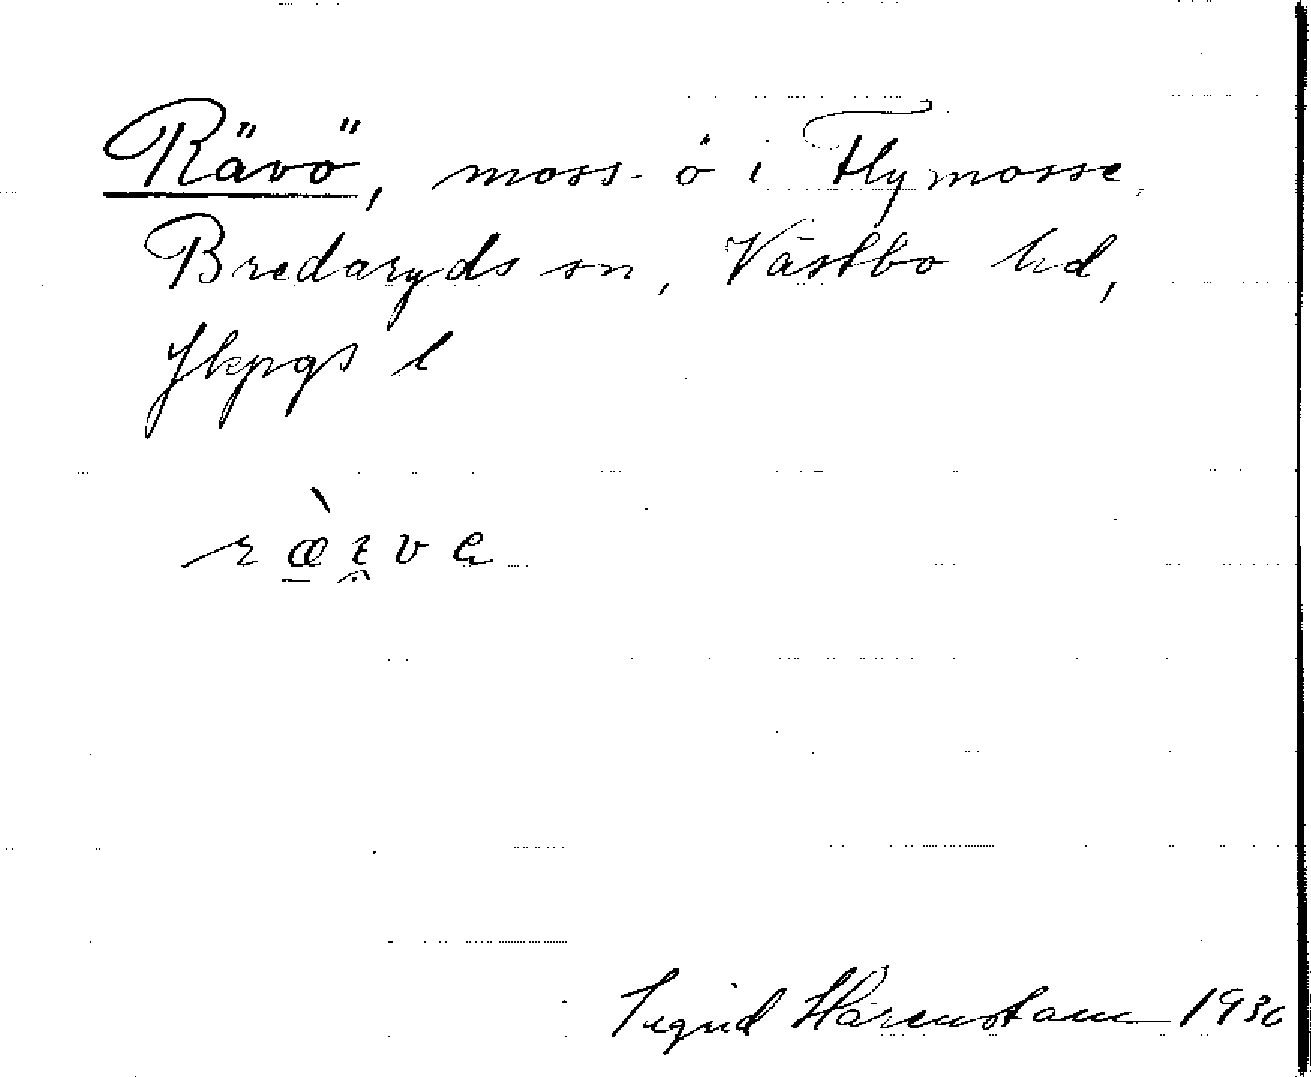 Rävö, moss-ö i Flymosse,
Bredaryds sn, Västbo hd,
Jkpgs l
Sigrid Hårenstam 1930